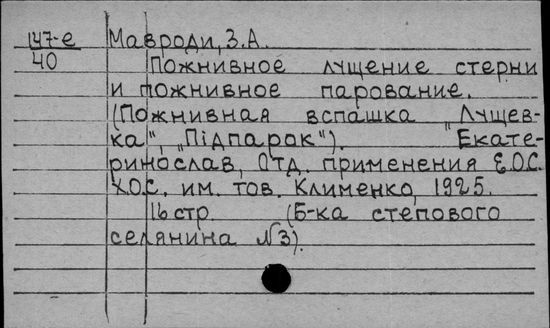 147-е Мавроди, З.А.
40 Пожнивное лущение стерни
и пожнивное парование.
(Пожнивная вспашка "Лущев-
ка", "Підпарок"). Екате-
ринослав, Отд. применения Е.О.С.
Х.О.С. им. тов. Клименко, 1925.
16 стр. (Б-ка степового
селянина №3).